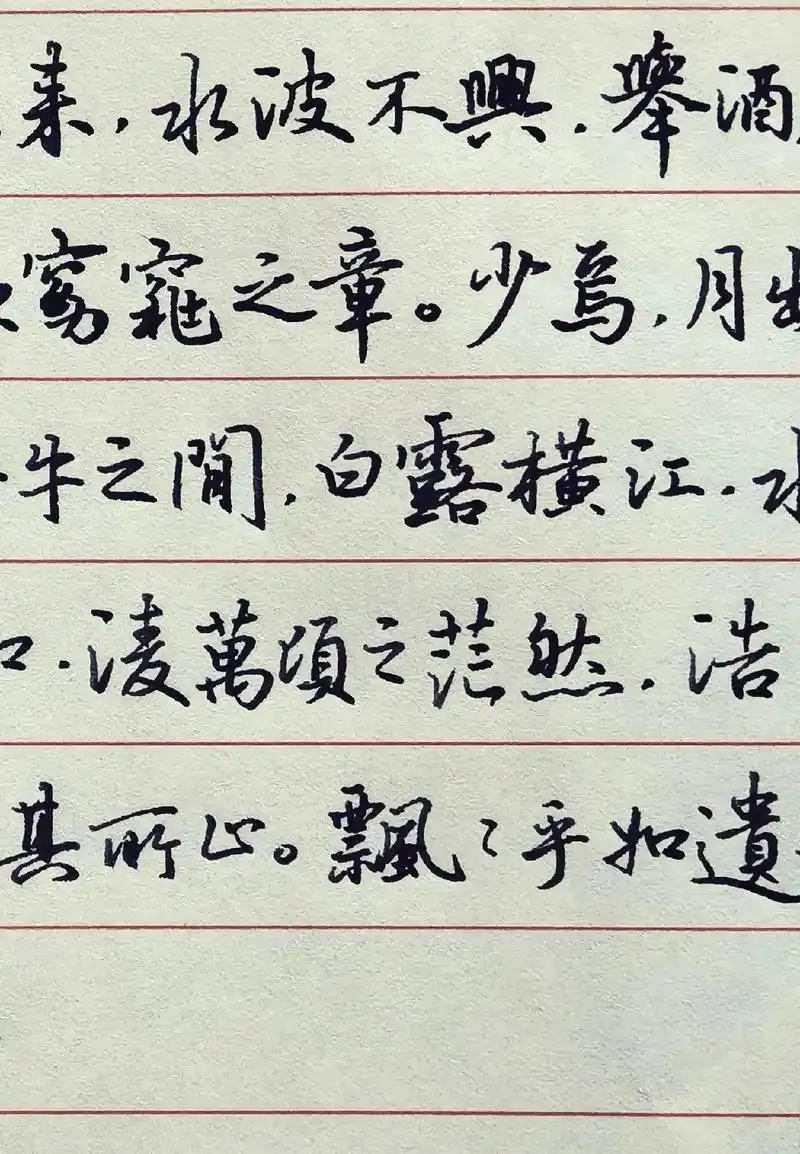 来，水波不興，舉酒
窈窕之章。少焉，月出
牛之間，白露橫江，水
，凌萬頃之茫然，浩
其所止。飄〻乎如遺